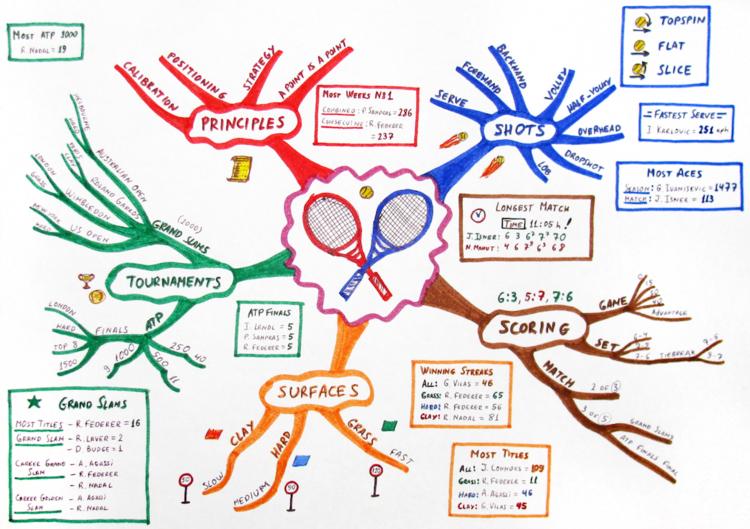 MOST ATP 1000
R. NADAL = 19
PRINCIPLES
CALIBRATION
POSITIONING
STRATEGY
A POINT IS A POINT
MOST WEEKS N31
COMBINED: P. SAMPRAS = 286
CONSECUTIVE: R. FEDERER = 237
SHOTS
SERVE
FOREHAND
BACKHAND
VOLLEY
HALF-VOLLEY
OVERHEAD
DROPSHOT
LOB
TOPSPIN
FLAT
SLICE
FASTEST SERVE
I. KARLOVIC = 251 kph
MOST ACES
SEASON: G. IVANISEVIC = 1477
MATCH: J. ISNER = 113
LONGEST MATCH
TIME 11:05 h!
J. ISNER: 6 3 6⁷ 7⁷ 70
N. MAHUT: 4 6 7⁹ 6³ 68
TOURNAMENTS
GRAND SLAMS
(2000)
AUSTRALIAN OPEN
MELBOURNE
HARD
ROLAND GARROS
PARIS
CLAY
WIMBLEDON
LONDON
GRASS
US OPEN
NEW YORK
HARD
ATP
FINALS
LONDON
HARD
TOP 8
1500
1000
9
500
11
250
40
ATP FINALS
I. LENDL = 5
P. SAMPRAS = 5
R. FEDERER = 5
6:3, 5:7, 7:6
SCORING
GAME
15
40
ADVANTAGE
SET
6-4
7-5
7-6
TIEBREAK
7-5
9-7
MATCH
2 OF 3
3 OF 5
GRAND SLAMS
ATP FINALS FINAL
SURFACES
CLAY
SLOW
HARD
MEDIUM
GRASS
FAST
WINNING STREAKS
ALL: G. VILAS = 46
GRASS: R. FEDERER = 65
HARD: R. FEDERER = 56
CLAY: R. NADAL = 81
MOST TITLES
ALL: J. CONNORS = 109
GRASS: R. FEDERER = 11
HARD: A. AGASSI = 46
CLAY: G. VILAS = 45
GRAND SLAMS
MOST TITLES - R. FEDERER = 16
GRAND SLAM - R. LAVER = 2
- D. BUDGE = 1
CAREER GRAND SLAM - A. AGASSI
- R. FEDERER
- R. NADAL
CAREER GOLDEN SLAM - A. AGASSI
- R. NADAL